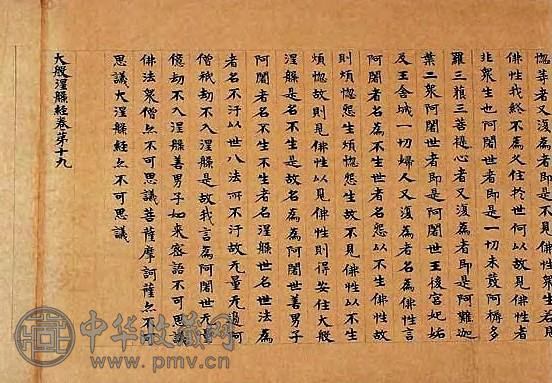 惱等者又復為者即是不見佛性衆生若見
佛性我終不為久住於世何以故見佛性者
非衆生也阿闍世者即是一切未發阿耨多
羅三藐三菩提心者又復為者即是阿難迦
葉二衆阿闍世者即是阿闍世王後宮妃妬
及王舍城一切婦人又復為者名為佛性言
阿闍者名為不生世者名怨以不生佛性故
則煩惱怨生煩惱怨生故不見佛性以不生
煩惱故則見佛性以見佛性故則得安住大般
涅槃是名不生是故名為為阿闍世善男子
阿闍者名不生不生者名涅槃世名世法為
者名不汙以世八法所不汙故无量无邊阿
僧祇劫不入涅槃是故我言為阿闍世无量
億劫不入涅槃善男子如來密語不可思議
佛法衆僧亦不可思議菩薩摩訶薩亦不可
思議大涅槃經亦不可思議
大般涅槃經卷第十九
中华收藏网
www.pmv.cn